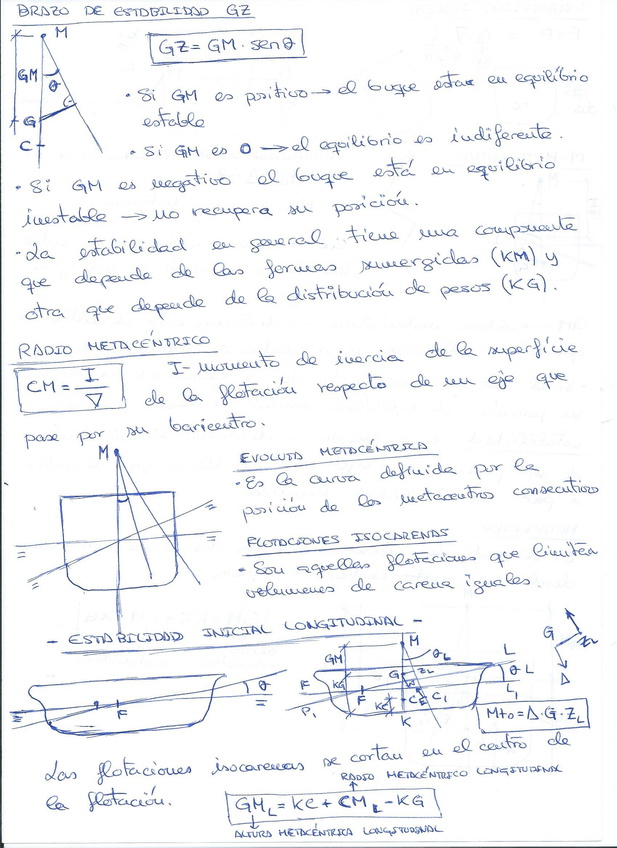 BRAZO DE ESTABILIDAD GZ
M
GZ = GM · senθ
GM
θ
G
C
· Si GM es positivo → el buque estar en equilibrio
estable
· Si GM es 0 → el equilibrio es indiferente.
· Si GM es negativo el buque está en equilibrio
inestable → no recupera su posición.
· La estabilidad en general tiene una componente
que depende de las formas sumergidas (KM) y
otra que depende de la distribución de pesos (KG).
RADIO METACÉNTRICO
CM = I / ∇
I- momento de inercia de la superfície
de la flotación respecto de un eje que
pase por su baricentro.
M
EVOLUTA METACÉNTRICA
· Es la curva definida por la
posición de los metacentros consecutivos
FLOTACIONES ISOCARENAS
· Son aquellas flotaciones que limitan
volumenes de carena iguales.
- ESTABILIDAD INICIAL LONGITUDINAL -
F
θ
M
GM
θL
G
ZL
KG
F
F
P1
KC
C
C1
K
L
θL
L1
G
ZL
Δ
Mto = Δ·G·ZL
Las flotaciones isocarenas se cortan en el centro de
la flotación.
RADIO METACÉNTRICO LONGITUDINAL
GML = KC + CML - KG
ALTURA METACÉNTRICA LONGITUDINAL